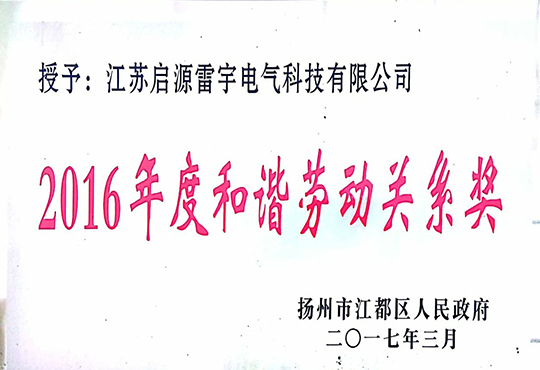 授予：江苏启源雷宇电气科技有限公司
2016年度和谐劳动关系奖
扬州市江都区人民政府
二〇一七年三月